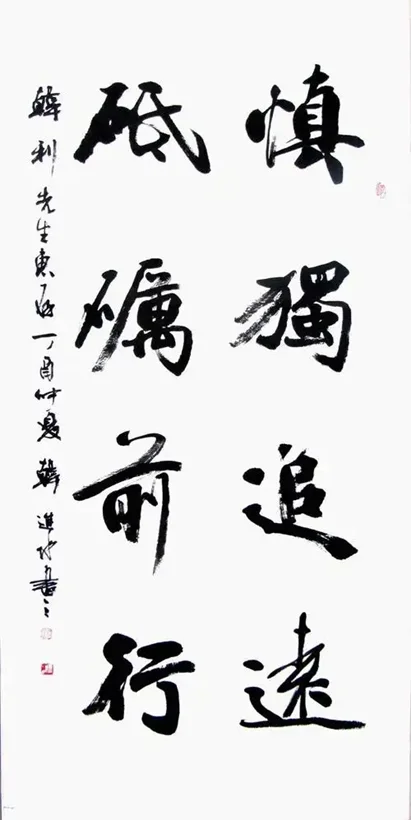 慎獨追遠
砥礪前行
韓利先生惠存丁酉仲夏韓進書之